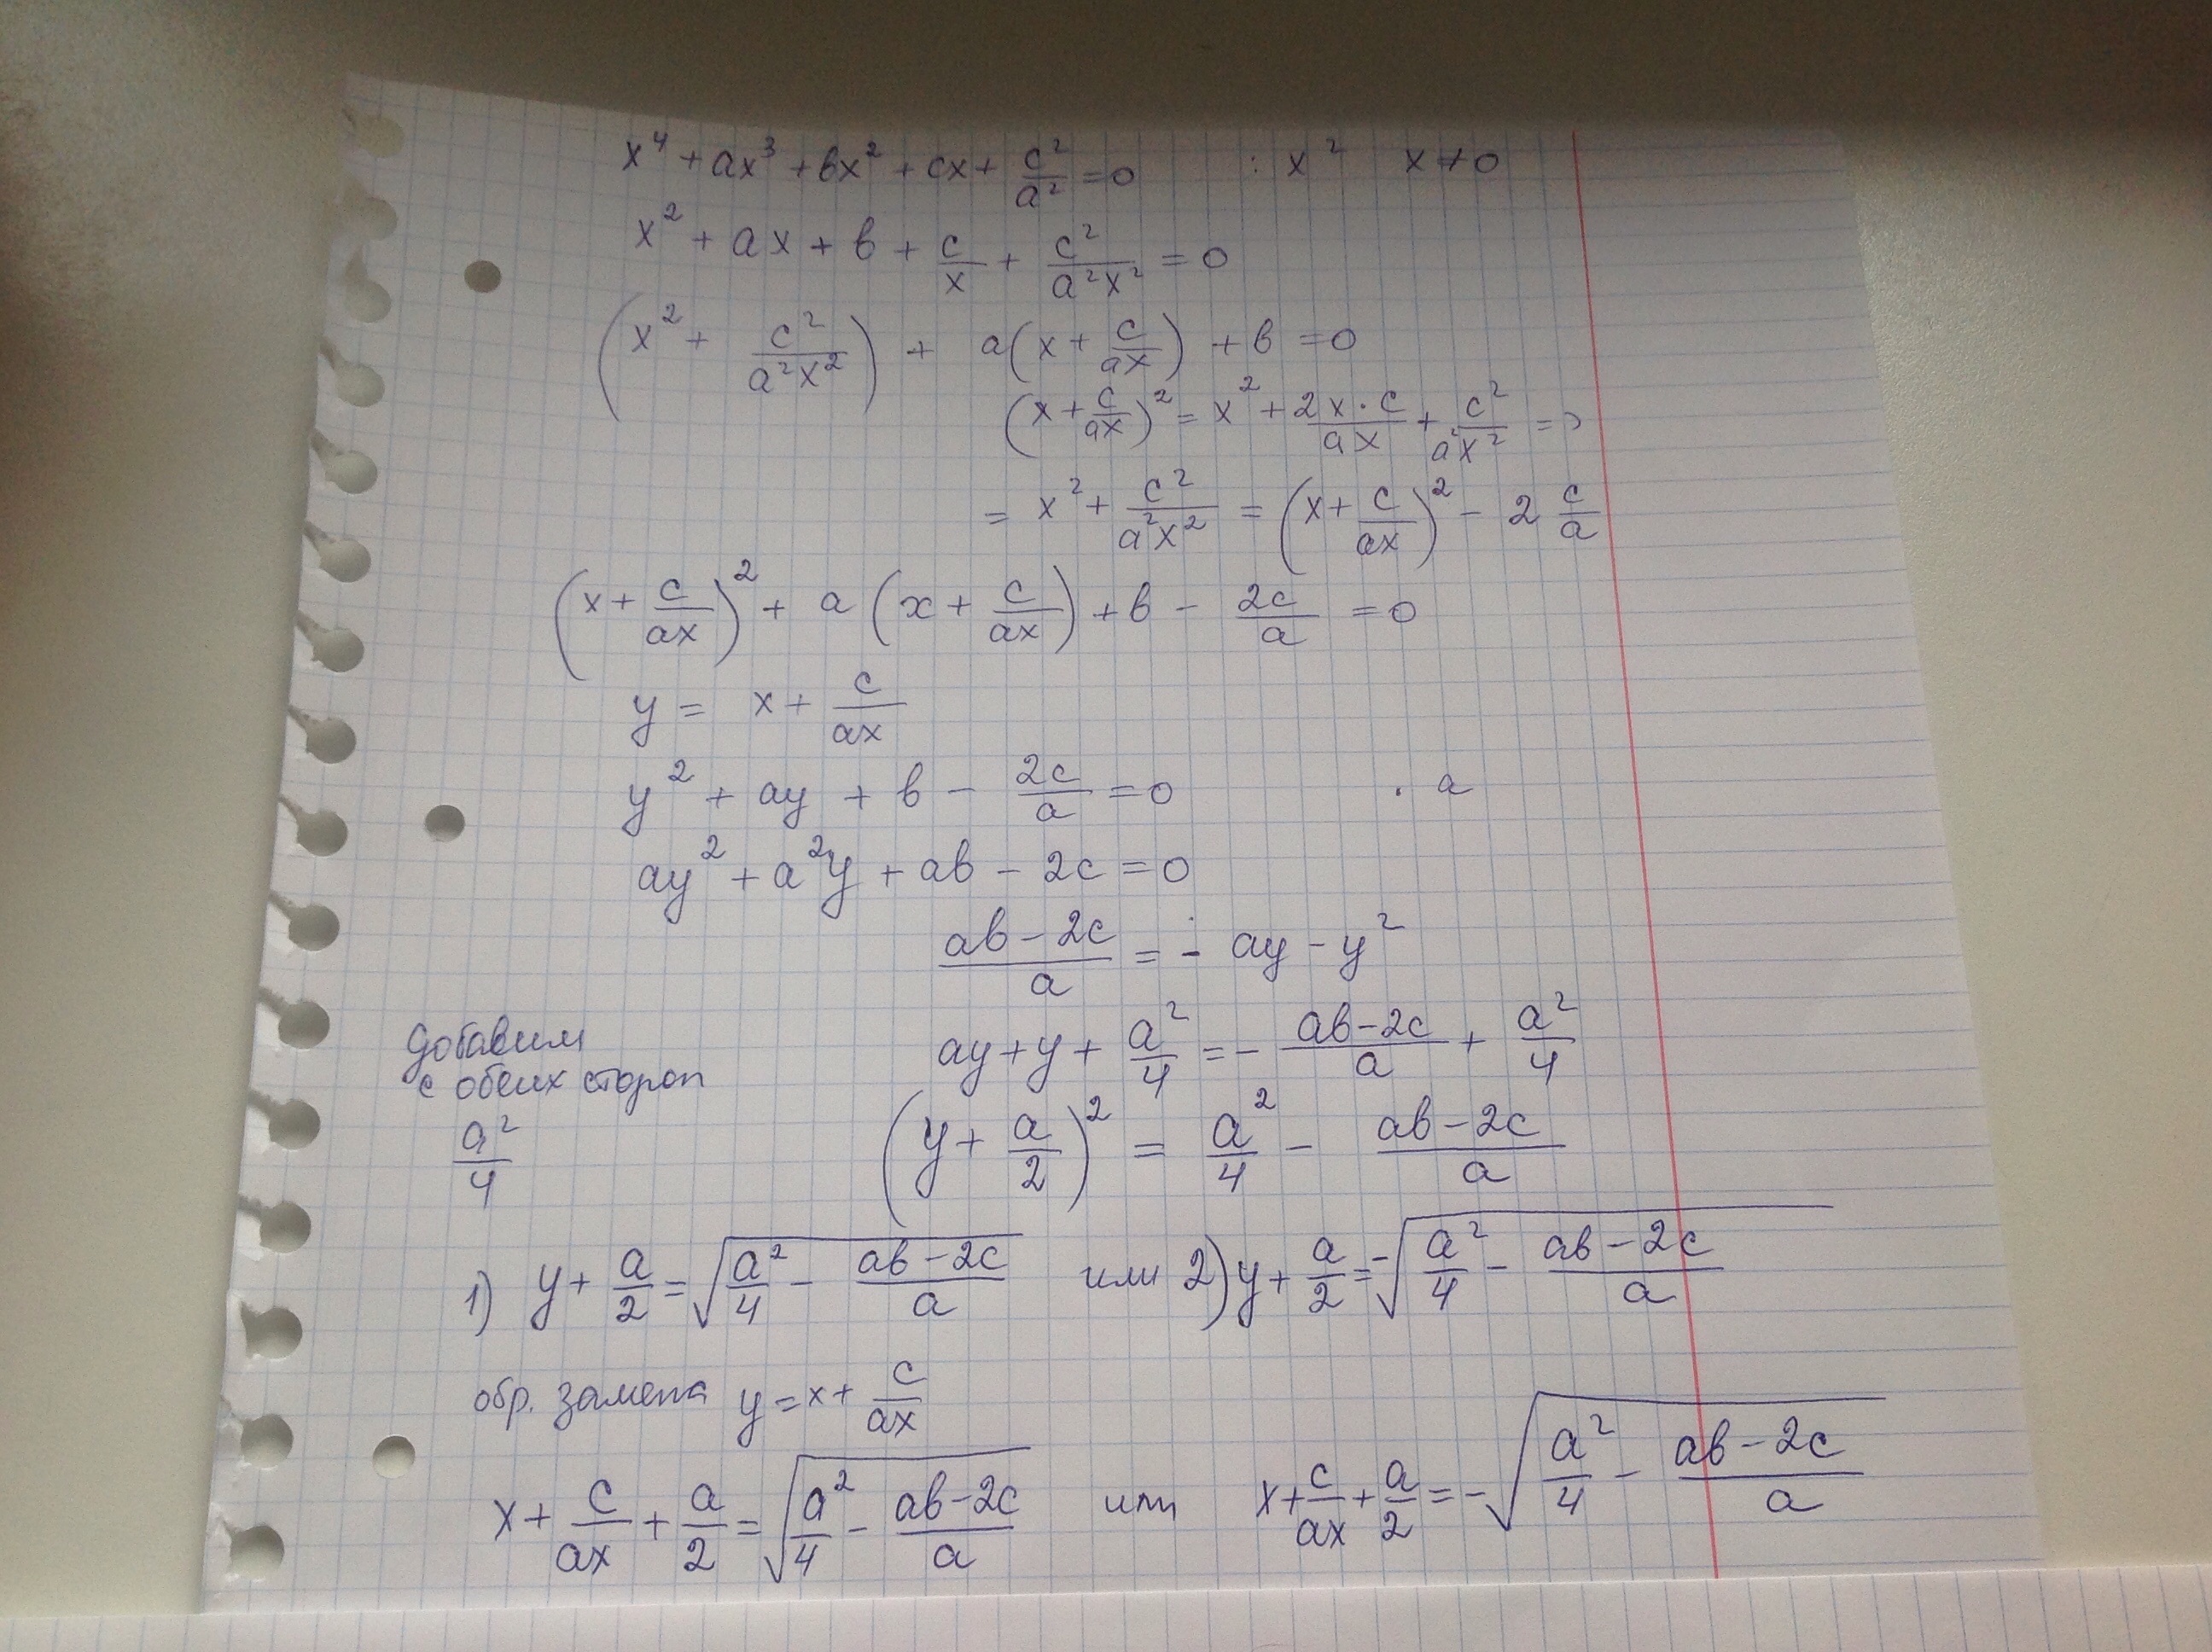 x⁴ + ax³ + bx² + cx + c²/a² = 0 : x² x ≠ 0
x² + ax + b + c/x + c²/(a²x²) = 0
(x² + c²/(a²x²)) + a(x + c/(ax)) + b = 0
(x + c/(ax))² = x² + (2x · c)/(ax) + c²/(a²x²) =>
= x² + c²/(a²x²) = (x + c/(ax))² - 2 c/a
(x + c/(ax))² + a(x + c/(ax)) + b - 2c/a = 0
y = x + c/(ax)
y² + ay + b - 2c/a = 0 · a
ay² + a²y + ab - 2c = 0
(ab - 2c)/a = - ay - y²
добавим
с обеих сторон
a²/4
ay + y + a²/4 = - (ab - 2c)/a + a²/4
(y + a/2)² = a²/4 - (ab - 2c)/a
1) y + a/2 = √(a²/4 - (ab - 2c)/a) или 2) y + a/2 = -√(a²/4 - (ab - 2c)/a)
обр. замена y = x + c/(ax)
x + c/(ax) + a/2 = √(a²/4 - (ab - 2c)/a) или x + c/(ax) + a/2 = -√(a²/4 - (ab - 2c)/a)